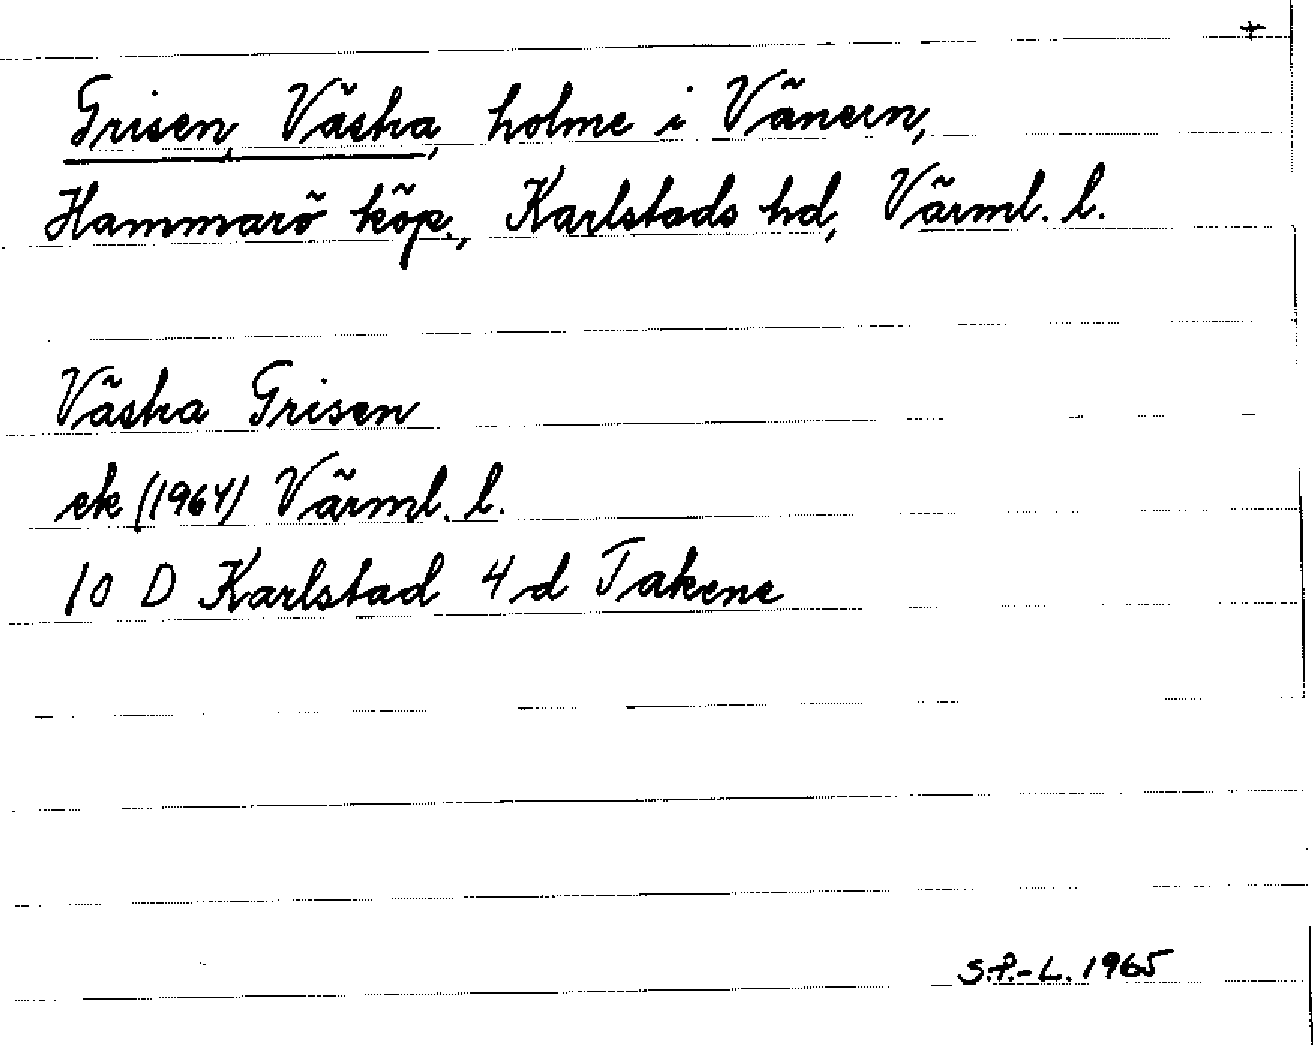 +
Grisen, Västra, holme i Vänern,
Hammarö köp., Karlstads hd, Värml. l.
Västra Grisen
ek (1964) Värml. l.
10 D Karlstad 4 d Takene
S.P.-L. 1965